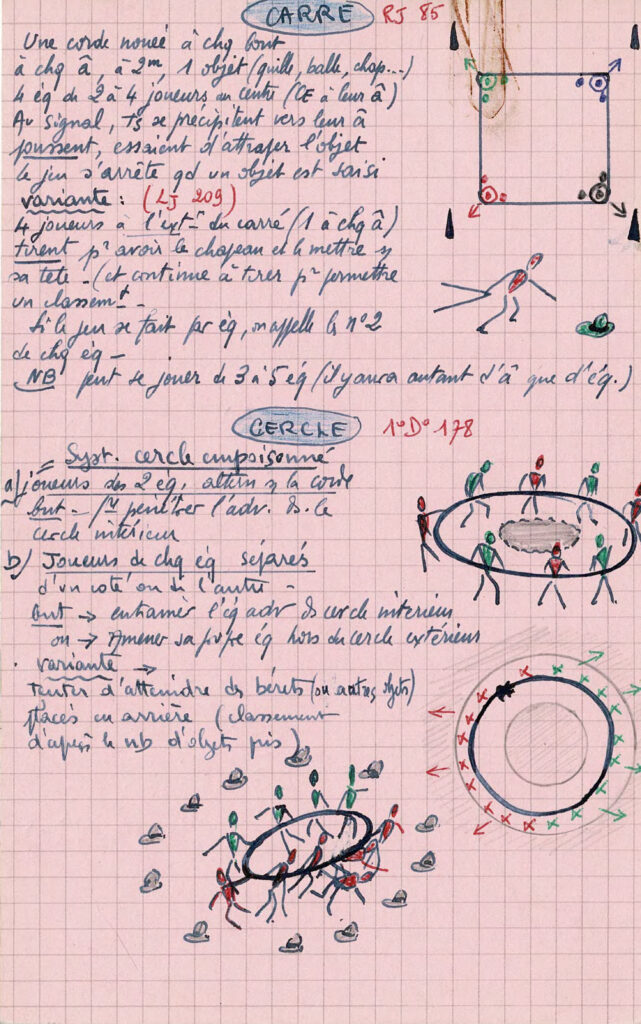 CARRÉ RJ 85
Une corde nouée à chq bout
à chq â, à 2m, 1 objet (quille, balle, chap...)
4 éq de 2 à 4 joueurs au centre (CE à leur â)
Au signal, Ts se précipitent vers leur â
poussent, essaient d'attraper l'objet
le jeu s'arrête qd un objet est saisi
variante : (LJ 209)
4 joueurs à l'ext. du carré (1 à chq â)
tirent pr avoir le chapeau et le mettre sr
sa tête - (et continue à tirer pr permettre
un classemt -
Si le jeu se fait par éq, on appelle les n°2
de chq éq -
NB peut se jouer de 3 à 5 éq (il y aura autant d'â que d'éq.)
CERCLE 1°D° 178
= Syst. cercle empoisonné
a) joueurs des 2 éq. altern sr la corde
but - pénétrer l'adv. ds. le
cercle intérieur
b) Joueurs de chq éq séparés
d'un coté ou de l'autre -
but → entrainer l'éq adv ds cercle intérieur
ou → Amener sa propre éq hors du cercle extérieur
. variante →
tenter d'atteindre des bérets (ou autres objets)
placés en arrière (classement
d'après le nb d'objets pris)